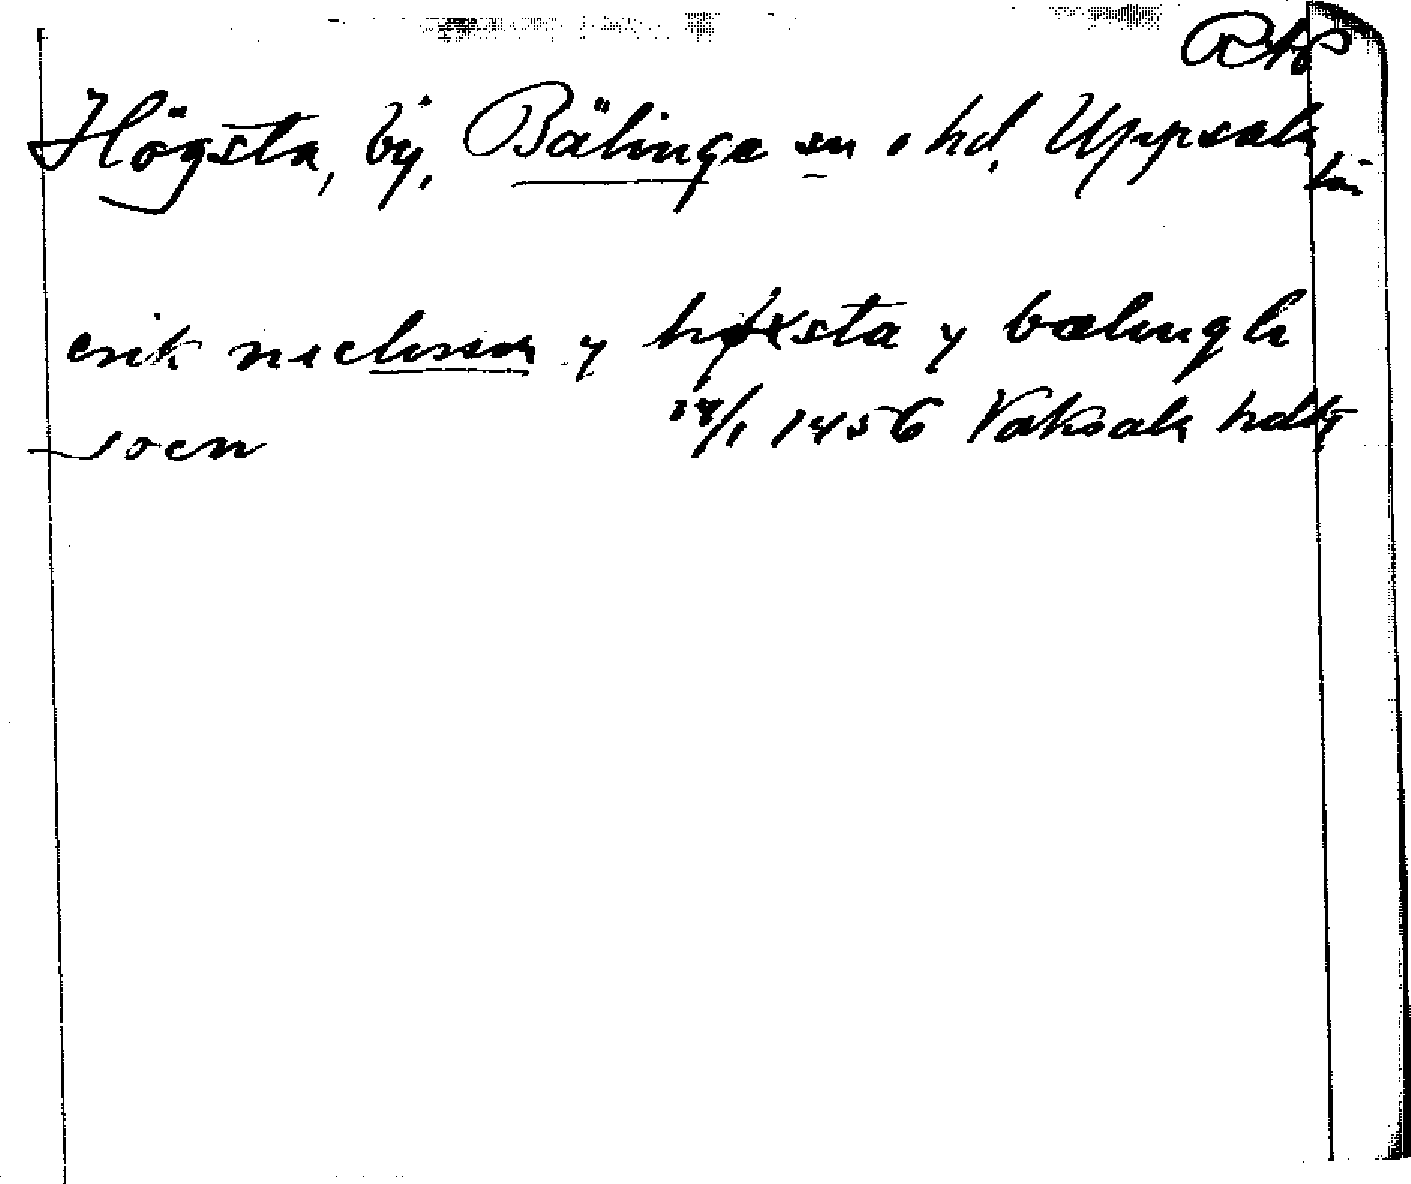 RAp
Högsta, by, Bälinge sn o hd, Uppsala
län
erik niclisson y høxsta y bælingh
soen 14/1 1456 Vaksala hdtg